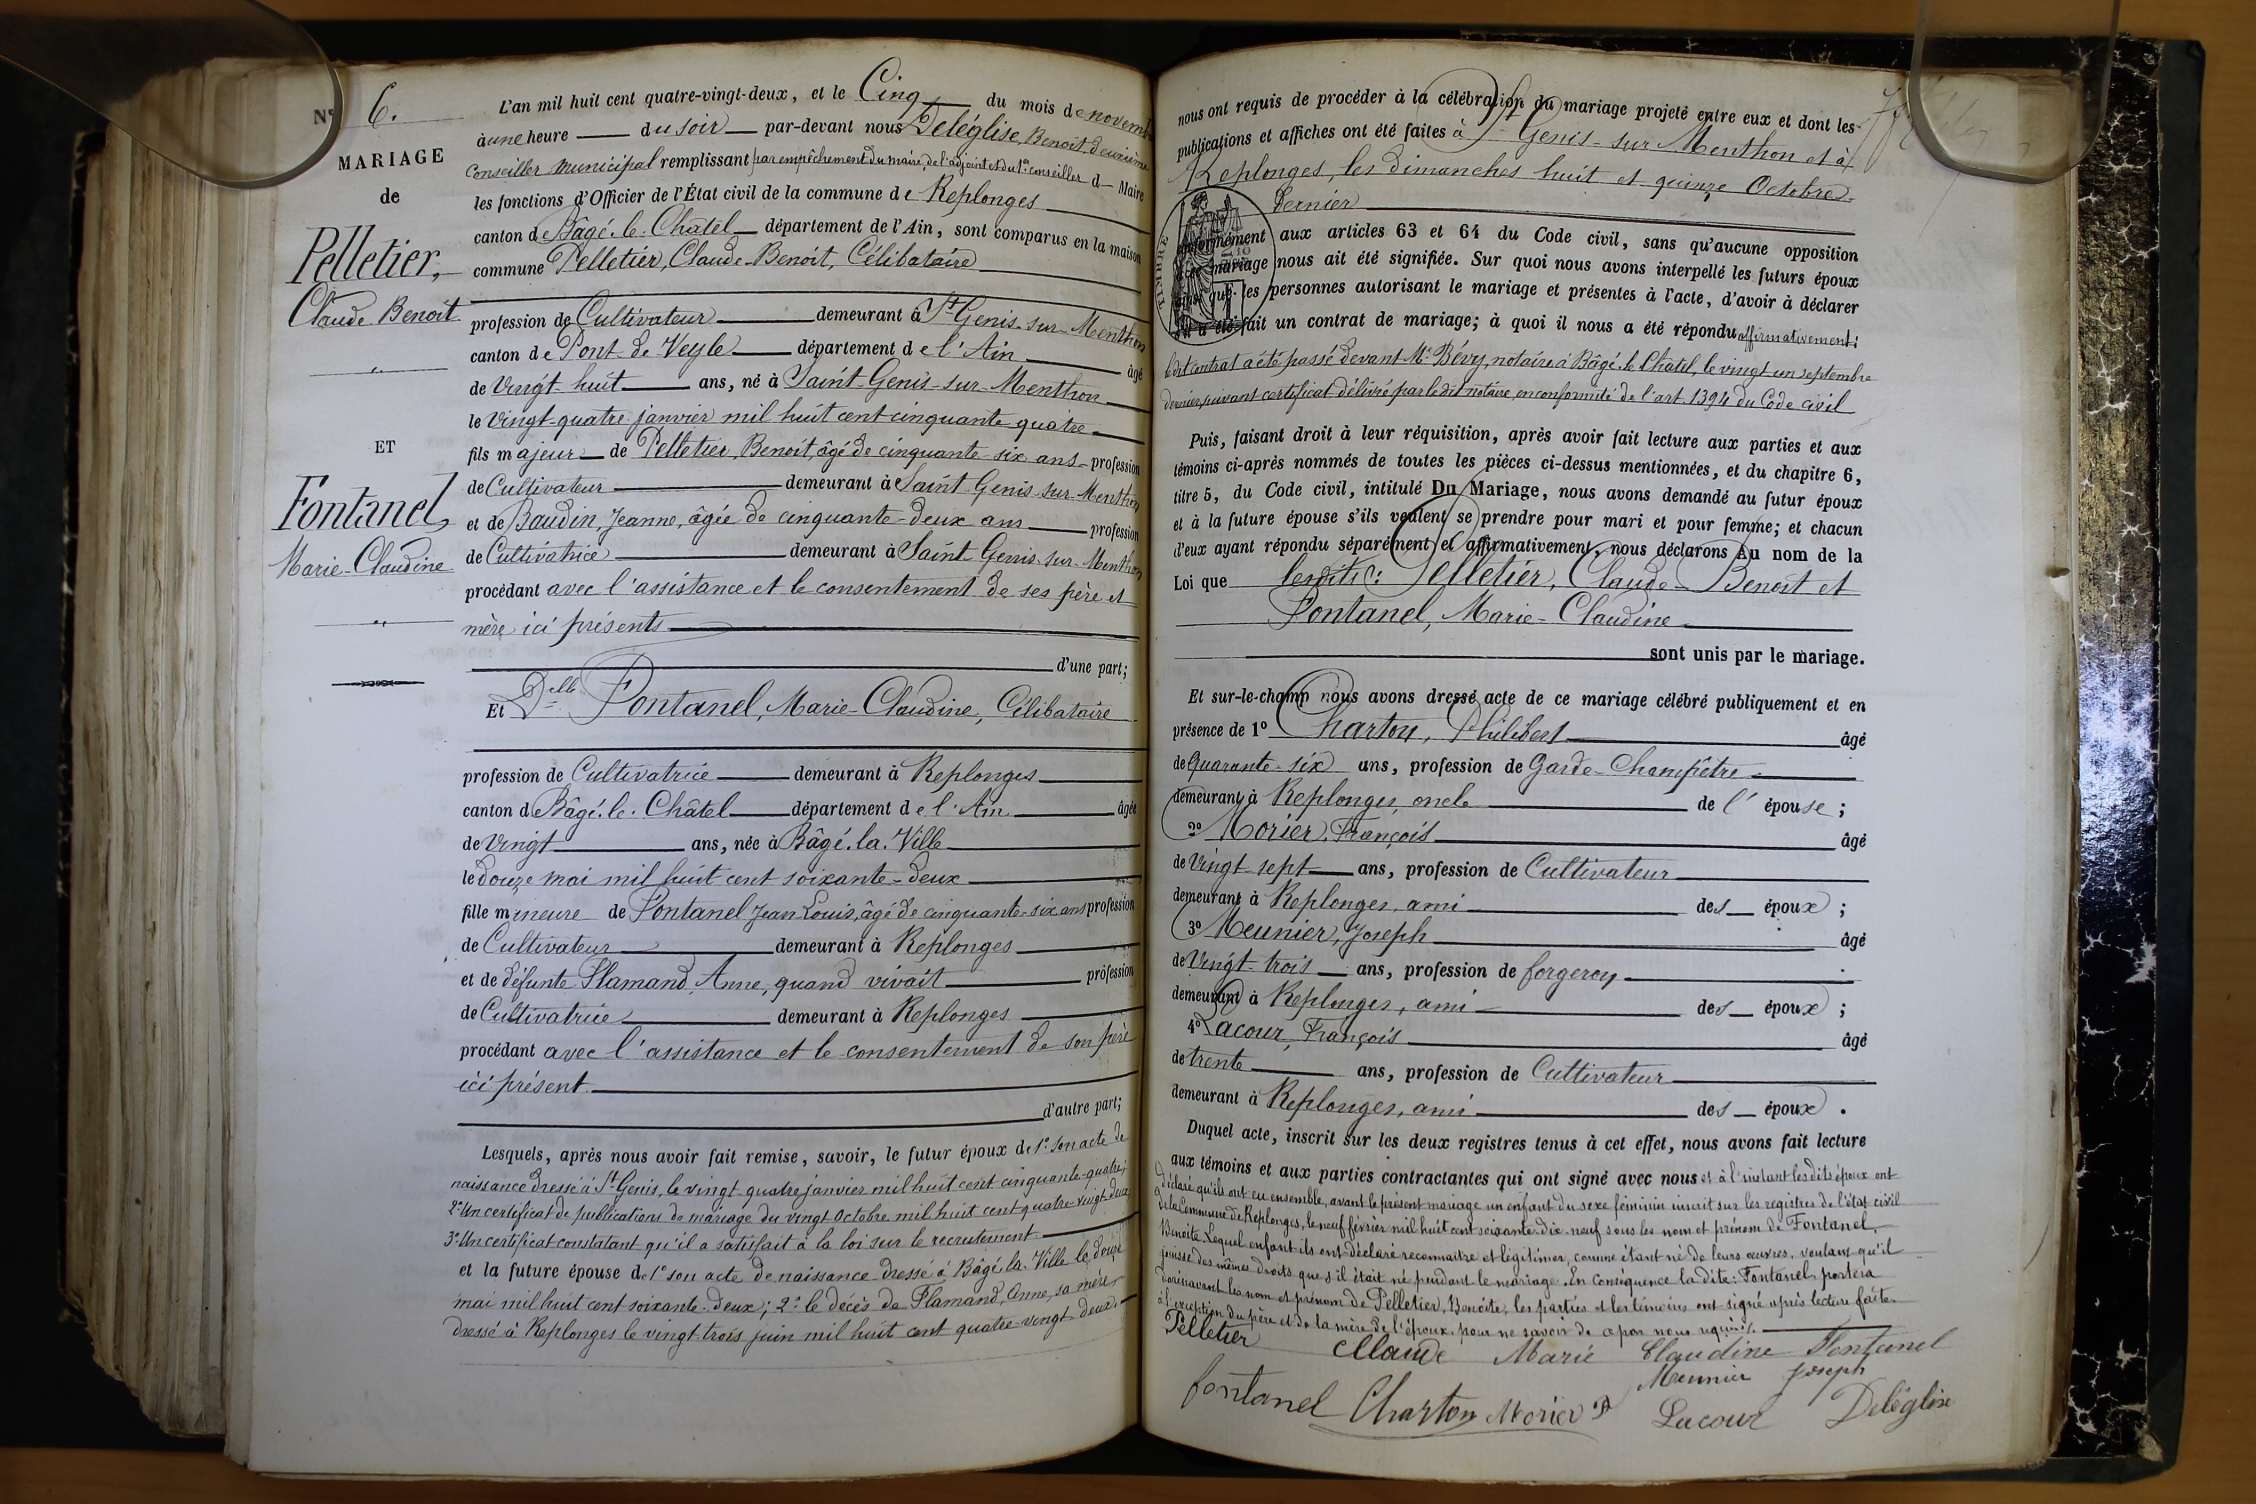 N° 6.
MARIAGE
de
Pelletier,
Claude Benoit
ET
Fontanel
Marie-Claudine
L'an mil huit cent quatre-vingt-deux, et le Cinq du mois de novembre
à une heure du soir par-devant nous Deléglise, Benoît, deuxième
Conseiller municipal remplissant par empêchement du maire, de l'adjoint et du 1er conseiller d Maire
les fonctions d'Officier de l'État civil de la commune de Replonges
canton de Bâgé-le-Châtel département de l'Ain, sont comparus en la maison
commune Pelletier, Claude-Benoit, Célibataire
profession de Cultivateur demeurant à St Genis-sur-Menthon
canton de Pont-de-Veyle département de l'Ain âgé
de Vingt-huit ans, né à Saint-Genis-sur-Menthon
le Vingt-quatre janvier mil huit cent cinquante quatre
fils majeur de Pelletier, Benoit, âgé de cinquante-six ans profession
de Cultivateur demeurant à Saint Genis-sur-Menthon
et de Baudin, Jeanne, âgée de cinquante-deux ans profession
de Cultivatrice demeurant à Saint-Genis-sur-Menthon
procédant avec l'assistance et le consentement de ses père et
mère ici présents
d'une part;
Et Delle Fontanel, Marie-Claudine, Célibataire
profession de Cultivatrice demeurant à Replonges
canton d Bâgé-le-Châtel département de l'Ain âgée
de Vingt ans, née à Bâgé-la-Ville
le douze mai mil huit cent soixante-deux
fille mineure de Fontanel Jean Louis, âgé de cinquante-six ans profession
de Cultivateur demeurant à Replonges
et de défunte Flamand, Anne, quand vivait profession
de Cultivatrice demeurant à Replonges
procédant avec l'assistance et le consentement de son père
ici présent
d'autre part;
Lesquels, après nous avoir fait remise, savoir, le futur époux de 1° son acte de
naissance dressé à St Genis, le vingt-quatre janvier mil huit cent cinquante-quatre;
2° Un certificat de publications de mariage du vingt Octobre mil huit cent quatre-vingt-deux
3° Un certificat constatant qu'il a satisfait à la loi sur le recrutement
et la future épouse de 1° son acte de naissance dressé à Bâgé-la-Ville le douze
mai mil huit cent soixante-deux; 2° le décès de Flamand, Anne, sa mère
dressé à Replonges le vingt-trois juin mil huit cent quatre-vingt-deux.
nous ont requis de procéder à la célébration du mariage projeté entre eux et dont les
publications et affiches ont été faites à St Genis-sur-Menthon et à
Replonges, les dimanches huit et quinze Octobre
dernier
conformément aux articles 63 et 64 du Code civil, sans qu'aucune opposition
mariage nous ait été signifiée. Sur quoi nous avons interpellé les futurs époux
ainsi que les personnes autorisant le mariage et présentes à l'acte, d'avoir à déclarer
s'il a été fait un contrat de mariage; à quoi il nous a été répondu affirmativement:
TIMBRE
ledit contrat a été passé devant Me Bévy, notaire à Bâgé-le-Châtel, le vingt un septembre
dernier, suivant certificat délivré par le dit notaire en conformité de l'art. 1394 du Code civil
Puis, faisant droit à leur réquisition, après avoir fait lecture aux parties et aux
témoins ci-après nommés de toutes les pièces ci-dessus mentionnées, et du chapitre 6,
titre 5, du Code civil, intitulé Du Mariage, nous avons demandé au futur époux
et à la future épouse s'ils veulent se prendre pour mari et pour femme; et chacun
d'eux ayant répondu séparément et affirmativement, nous déclarons Au nom de la
Loi que lesdits: Pelletier, Claude-Benoit et
Fontanel, Marie-Claudine
sont unis par le mariage.
Et sur-le-champ nous avons dressé acte de ce mariage célébré publiquement et en
présence de 1° Charton, Philibert âgé
de Quarante-six ans, profession de Garde-Champêtre
demeurant à Replonges, oncle de l'épouse;
2° Morier, François âgé
de Vingt-sept ans, profession de Cultivateur
demeurant à Replonges, ami des époux;
3° Meunier, Joseph âgé
de Vingt-trois ans, profession de forgeron
demeurant à Replonges, ami des époux;
4° Lacour, François âgé
de trente ans, profession de Cultivateur
demeurant à Replonges, ami des époux.
Duquel acte, inscrit sur les deux registres tenus à cet effet, nous avons fait lecture
aux témoins et aux parties contractantes qui ont signé avec nous et à l'instant les dits époux ont
déclaré qu'ils ont eu ensemble, avant le présent mariage un enfant du sexe féminin inscrit sur les registres de l'état civil
de la Commune de Replonges, le neuf février mil huit cent soixante-dix-neuf sous les nom et prénom de Fontanel,
Benoite. Lequel enfant ils ont déclaré reconnaitre et légitimer, comme étant né de leurs œuvres, voulant qu'il
jouisse des mêmes droits que s'il était né pendant le mariage. En conséquence la dite: Fontanel portera
dorénavant les nom et prénom de Pelletier, Benoite, les parties et les témoins ont signé après lecture faite
à l'exception du père et de la mère de l'époux, pour ne savoir de ce par nous requis.
Pelletier Claude Marie Claudine Fontanel
Meunier Joseph
fontanel Charton Morier Lacour Deléglise